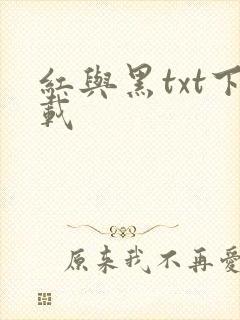 紅與黑txt下
載
原来我不再愛